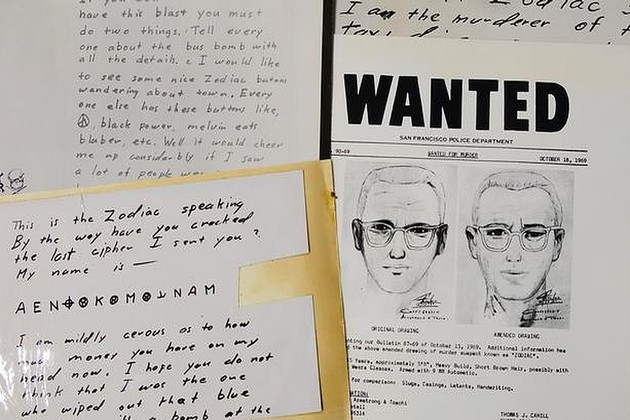 have this blast you must
do two things. Tell every
one about the bus bomb with
all the details. 2 I would like
to see some nice Zodiac butons
wandering about town. Every
one else has these buttons like,
☮, black power, melvin eats
bluber, etc. Well it would cheer
me up considerably if I saw
a lot of people
This is the Zodiac speaking
By the way have you cracked
the last cipher I sent you ?
My name is —
A E N ⌖ ⊗ K ⊗ M ⊗ ⅃ N A M
I am mildly cerous as to how
much money you have on my
head now. I hope you do not
think that I was the one
who wiped out that blue
a bomb at the
I am the murderer of
WANTED
SAN FRANCISCO POLICE DEPARTMENT
90-69 WANTED FOR MURDER OCTOBER 18, 1969
ORIGINAL DRAWING AMENDED DRAWING
our Bulletin 87-69 of October 13, 1969. Additional information has
the above amended drawing of murder suspect known as "ZODIAC".
Years, approximately 5'8", Heavy Build, Short Brown Hair, possibly with
Wears Glasses. Armed with 9 MM Automatic.
for comparison: Slugs, Casings, Latents, Handwriting.
Armstrong & Toschi
THOMAS J. CAHILL